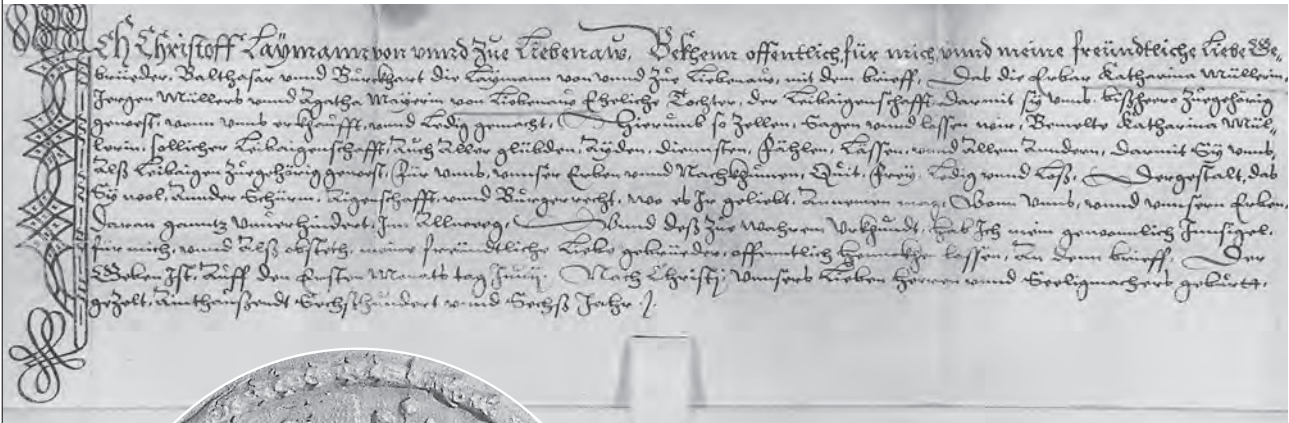 Ich Christoff Laÿmann von vnnd Zue Liebenaw, Bekhenn offentlich, für mich vnnd meine freündtliche liebe Ge„
brüeder, Balthasar vnnd Burckhart die Laÿmann von vnnd Zue Liebenaw, mit dem brieff, Das die Erbar Katharina Müllerin,
Jergen Müllers vnnd Agatha Maÿerin von Liebenaw Eheliche Tochter, der Leibaigenschafft, darmit sÿ vnns, bißheero Zuegehörig
gewest, vonn vnns erkhaufft, vnnd Ledig gemacht, Hierumb so Zellen, Sagen vnnd lassen wir, Bemelte Katharina Mül„
lerin, sollicher Leibaigenschafft, Auch Aller glübden, Aÿden, diennsten, Fählen, Lässen, vnnd Allem Anndern, Darmit Sÿ vnns,
Alß Leibaigen Zuegehörig gewest, Für vnns, vnnser Erben vnnd Nachkhumen, Quit, Freÿ, Ledig vnnd Loß, Dergestalt, das
Sÿ wol, Annder Schürm, Aigenschafft, vnnd Burgerrecht, wo es Ir geliebt, Annemen mag, Vonn vnns, vnnd vnnsern Erben,
daran ganntz vnuerhindert, Im Allweeg, Vnnd deß Zue wahrem Vrkhundt, hab Ich mein gewonnlich Innsigel,
für mich, vnnd Alß obsteth, meine freündtliche Liebe gebrüeder, offentlich hennckhen lassen, An denn brieff, Der
Geben Ist, Auff den Ersten Monats tag Junij, Nach Christj, vnnsers Lieben Herren vnnd Seeligmachers geburtt,
gezelt, Ainthaußendt Sechßhundert vnnd Sechß Jahr